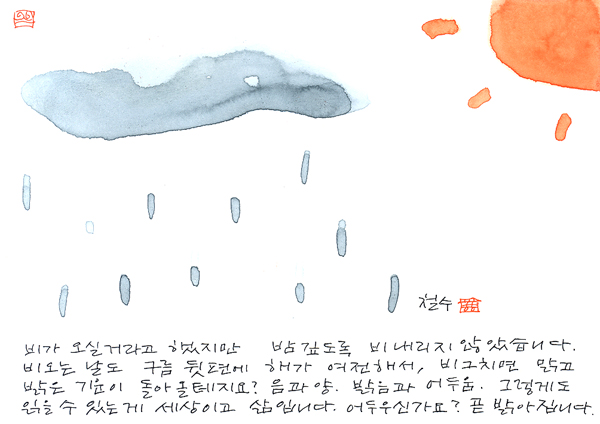 철수
비가 오실거라고 했지만 밤깊도록 비내리지 않았습니다.
비오는 날도 구름 뒷편에 해가 여전해서, 비그치면 맑고
밝은 기운이 돌아올테지요? 음과 양. 밝음과 어두움. 그렇게도
읽을 수 있는게 세상이고 삶입니다. 어두우신가요? 곧 밝아집니다.